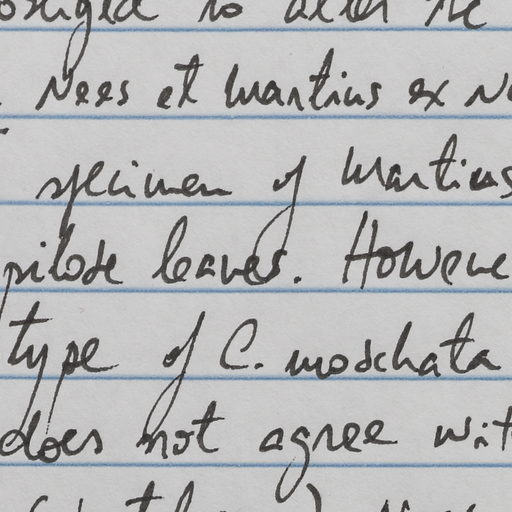 obliged to alter the
Nees et Martius ex Ne
specimen of Martius
pilose leaves. Howeve
type of C. moschata
does not agree wit